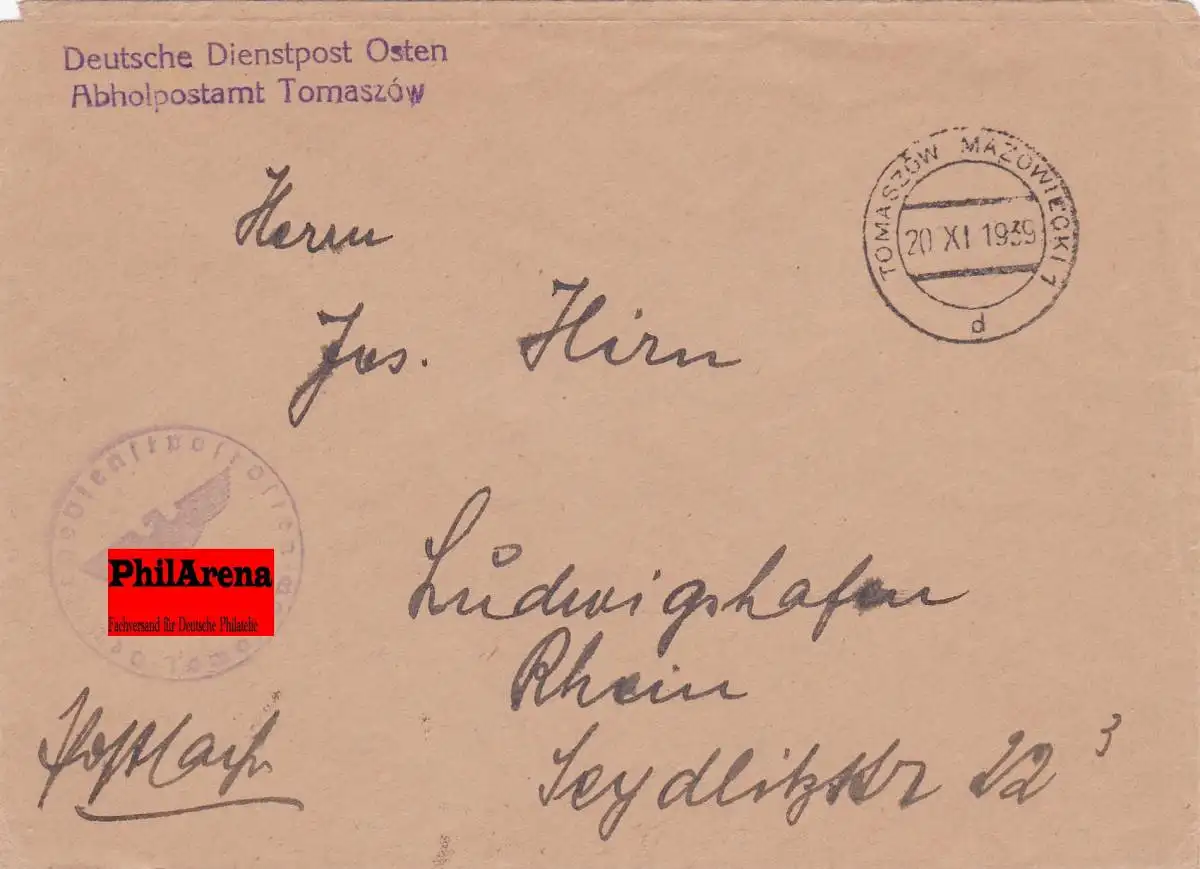 Deutsche Dienstpost Osten
Abholpostamt Tomaszów
TOMASZÓW MAZOWIECKI 1
20 XI 1939
d
Herrn
Jos. Hirn
Dienstpost Osten
PhilArena
Fachversand für Deutsche Philatelie
Ludwigshafen
Rhein
Postsach
Seydlitzstr 22 3